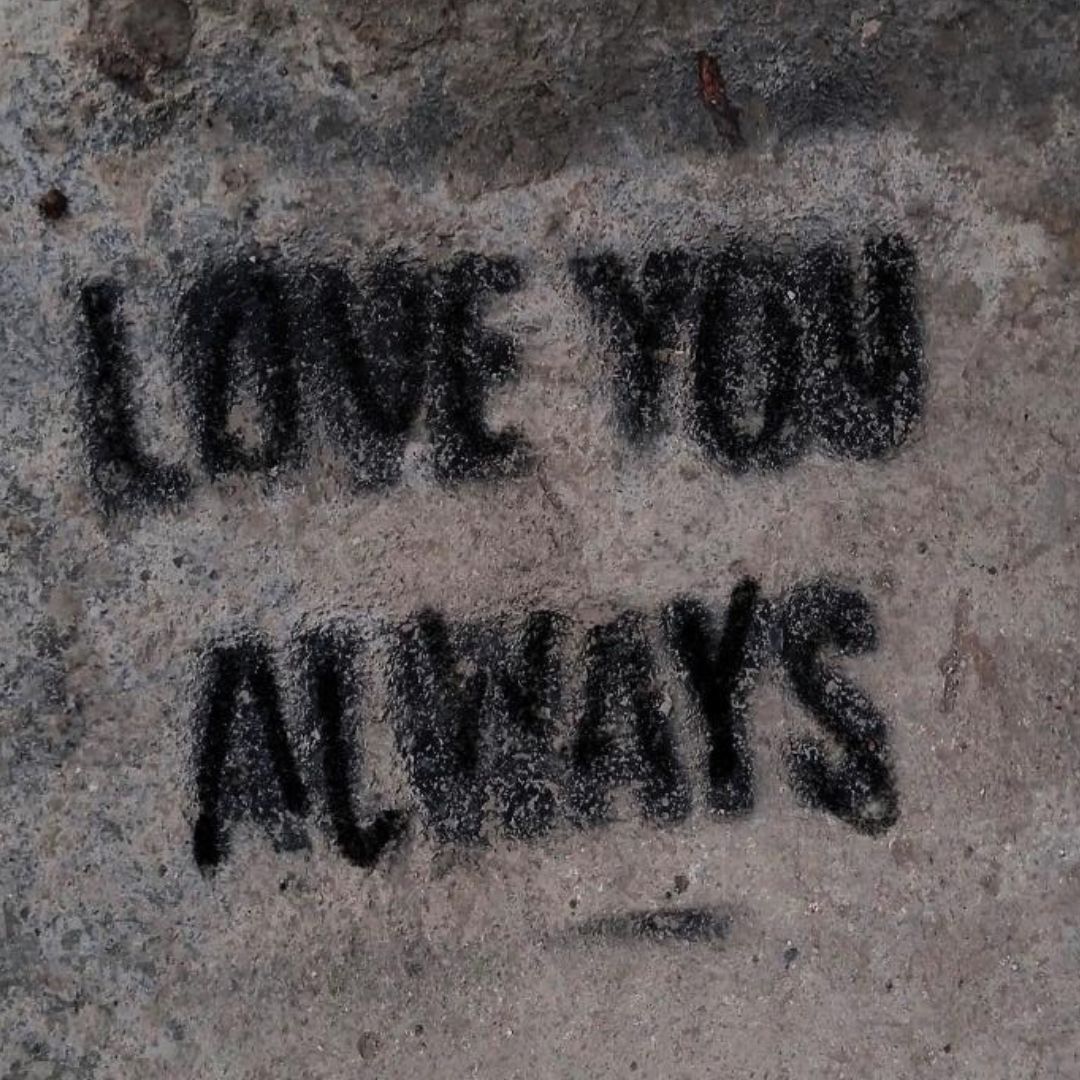 LOVE YOU
ALWAYS